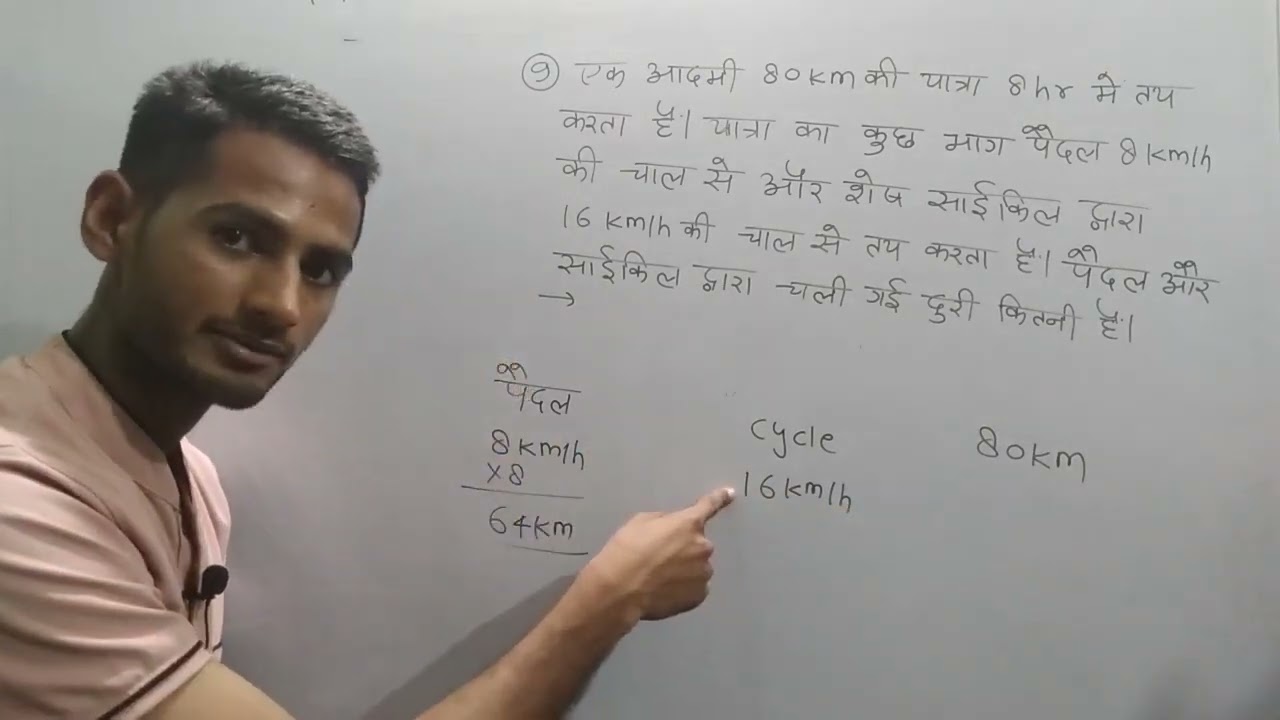 9 एक आदमी 80km की यात्रा 8hr मे तय
करता है। यात्रा का कुछ भाग पैदल 8km/h
की चाल से और शेष साईकिल द्वारा
16 km/h की चाल से तय करता है। पैदल और
साईकिल द्वारा चली गई दुरी कितनी है।
→
पैदल
8km/h
x8
64km
cycle
16km/h
80km